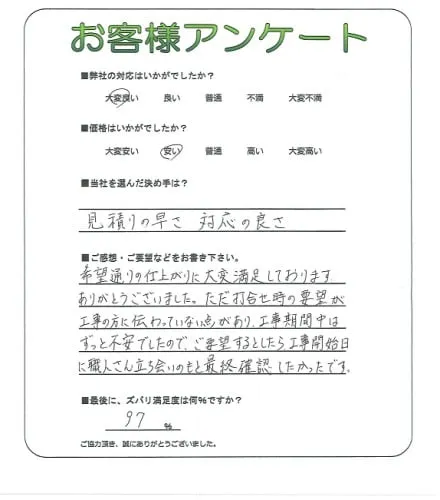 お客様アンケート
■弊社の対応はいかがでしたか?
大変良い 良い 普通 不満 大変不満
■価格はいかがでしたか?
大変安い 安い 普通 高い 大変高い
■当社を選んだ決め手は?
見積りの早さ 対応の良さ
■ご感想・ご要望などをお書き下さい。
希望通りの仕上がりに大変満足しております
ありがとうございました。ただ打合せ時の要望が
工事の方に伝わっていない点があり、工事期間中は
ずっと不安でしたので、ご要望するとしたら工事開始日
に職人さん立ち会いのもと最終確認したかったです。
■最後に、ズバリ満足度は何%ですか?
97 %
ご協力頂き、誠にありがとうございました。